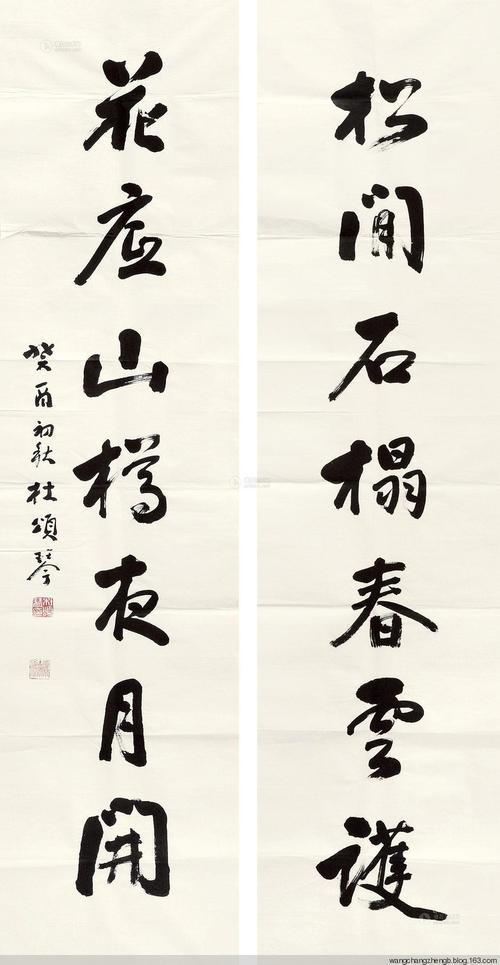 松閒石榻春雲護
花底山樽夜月開
癸酉初秋杜頌琴
wangchangzhengb.blog.163.com